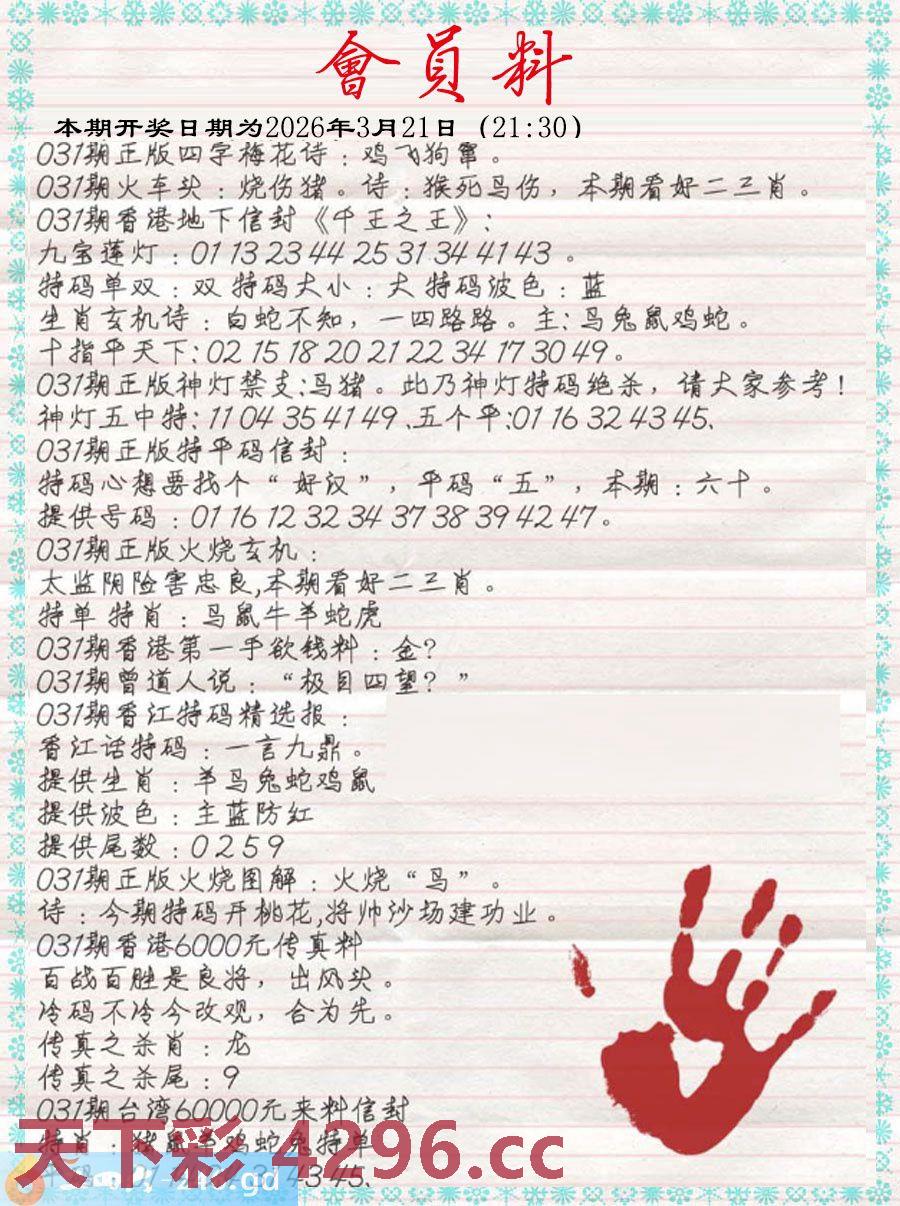 會員料
本期开奖日期为2026年3月21日（21:30）
031期正版四字梅花诗：鸡飞狗窜。
031期火车头：烧伤猪。诗：猴死鸟伤，本期看好二三肖。
031期香港地下信封《千王之王》：
九宝莲灯：01 13 23 44 25 31 34 41 43 。
特码单双：双 特码大小：大 特码波色：蓝
生肖玄机诗：白蛇不知，一四路路。主：马兔鼠鸡蛇。
十指平天下：02 15 18 20 21 22 34 17 30 49。
031期正版神灯禁支：马猪。此乃神灯特码绝杀，请大家参考！
神灯五中特：11 04 35 41 49 、五个平：01 16 32 43 45、
031期正版特平码信封：
特码心想要找个“好汉”，平码“五”，本期：六十。
提供号码：01 16 12 32 34 37 38 39 42 47。
031期正版火烧玄机：
太监阴险害忠良，本期看好二三肖。
特单 特肖：马鼠牛羊蛇虎
031期香港第一手欲钱料：金？
031期曾道人说：“极目四望？”
031期香江特码精选报：
香江话特码：一言九鼎。
提供生肖：羊马兔蛇鸡鼠
提供波色：主蓝防红
提供尾数：0 2 5 9
031期正版火烧图解：火烧“鸟”。
诗：今期特码开桃花，将帅沙场建功业。
031期香港6000元传真料
百战百胜是良将，出风头。
冷码不冷今改观，合为先。
传真之杀肖：龙
传真之杀尾：9
031期台湾60000元来料信封
特肖：猪鼠羊鸡蛇兔特单
天下彩.4296.cc
43 45、
.gd